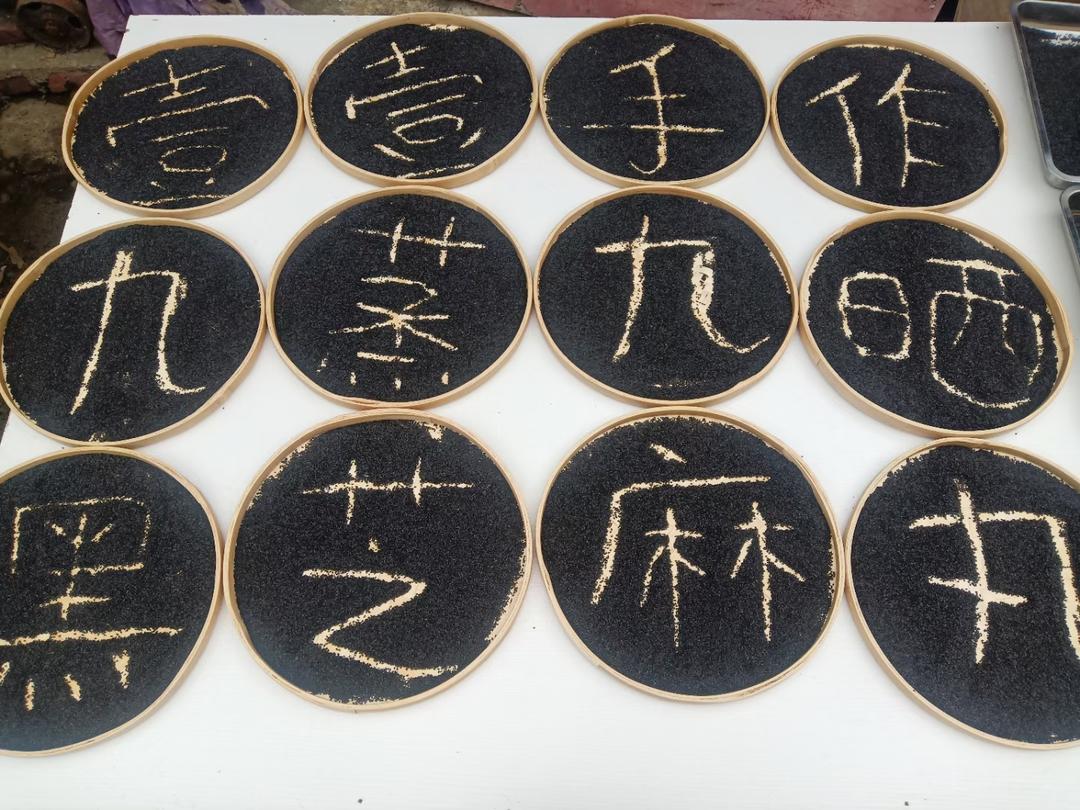 壹壹手作
九蒸九晒
黑芝麻丸